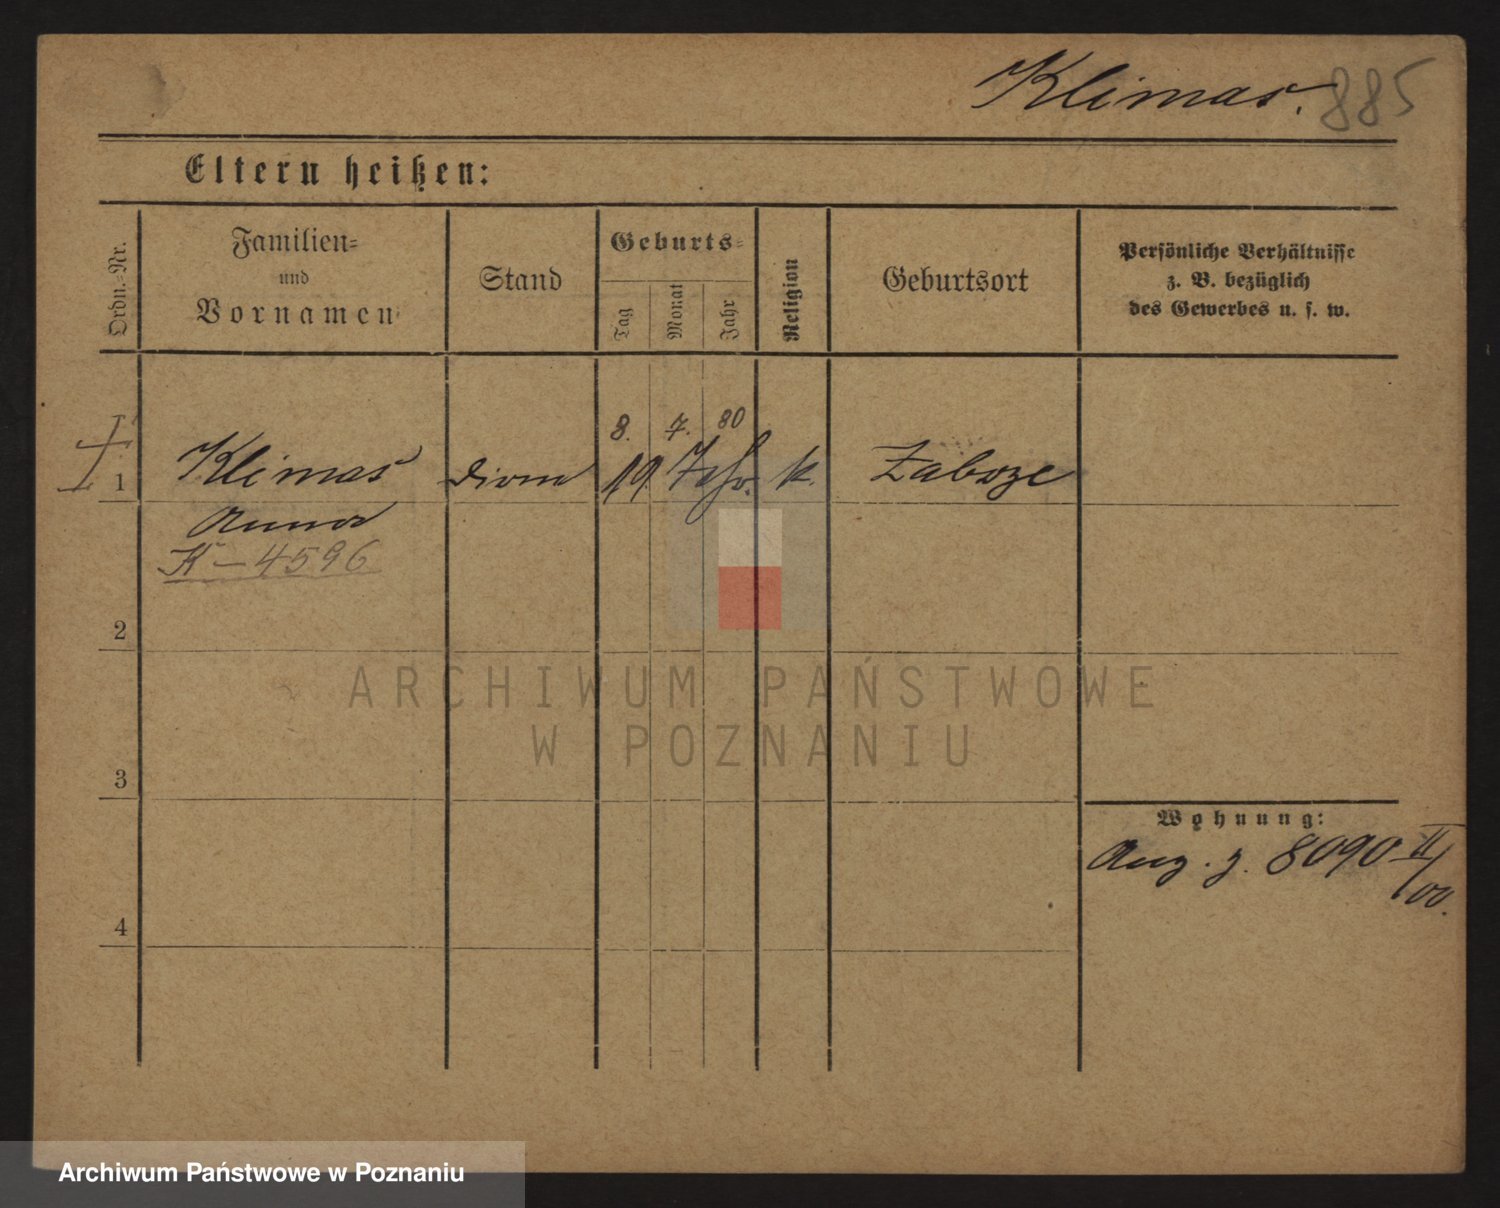 Klimas. 885
Eltern heißen:
Ordn.=Nr.
Familien=
und
Vornamen
Stand
Geburts=
Tag
Monat
Jahr
Religion
Geburtsort
Persönliche Verhältnisse
z. B. bezüglich
des Gewerbes u. s. w.
8. 7. 80
1 Klimas 19. Jahr. k.
Anna
K-4596
2
ARCHIWUM PAŃSTWOWE
W POZNANIU
3
Wohnung:
Anz. z. 8090 II/00.
4
Archiwum Państwowe w Poznaniu